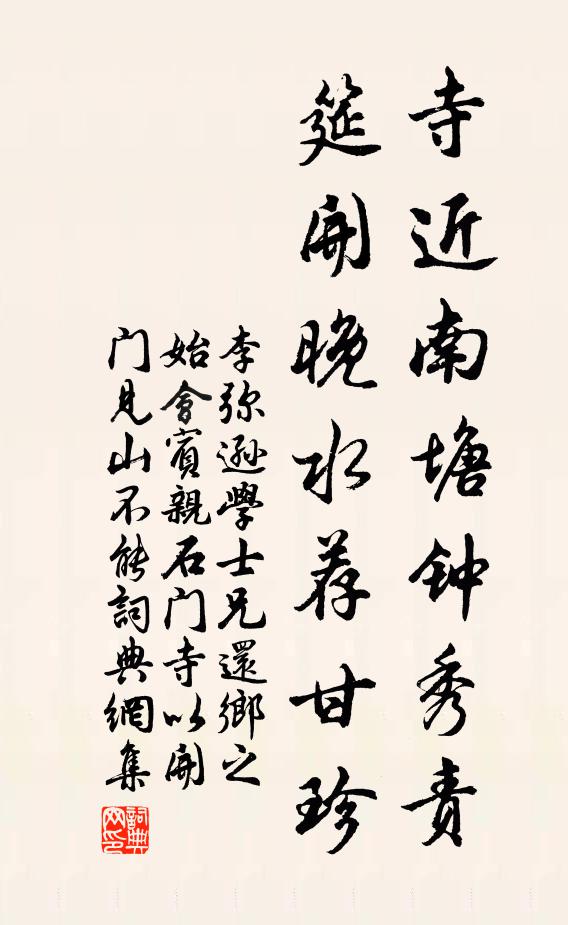 寺近南塘钟秀责
筵開晚水荐甘珍
李弥遜學士兄還鄉之
始會賓親石门寺以開
门見山不能詞典網集
詞典
网印